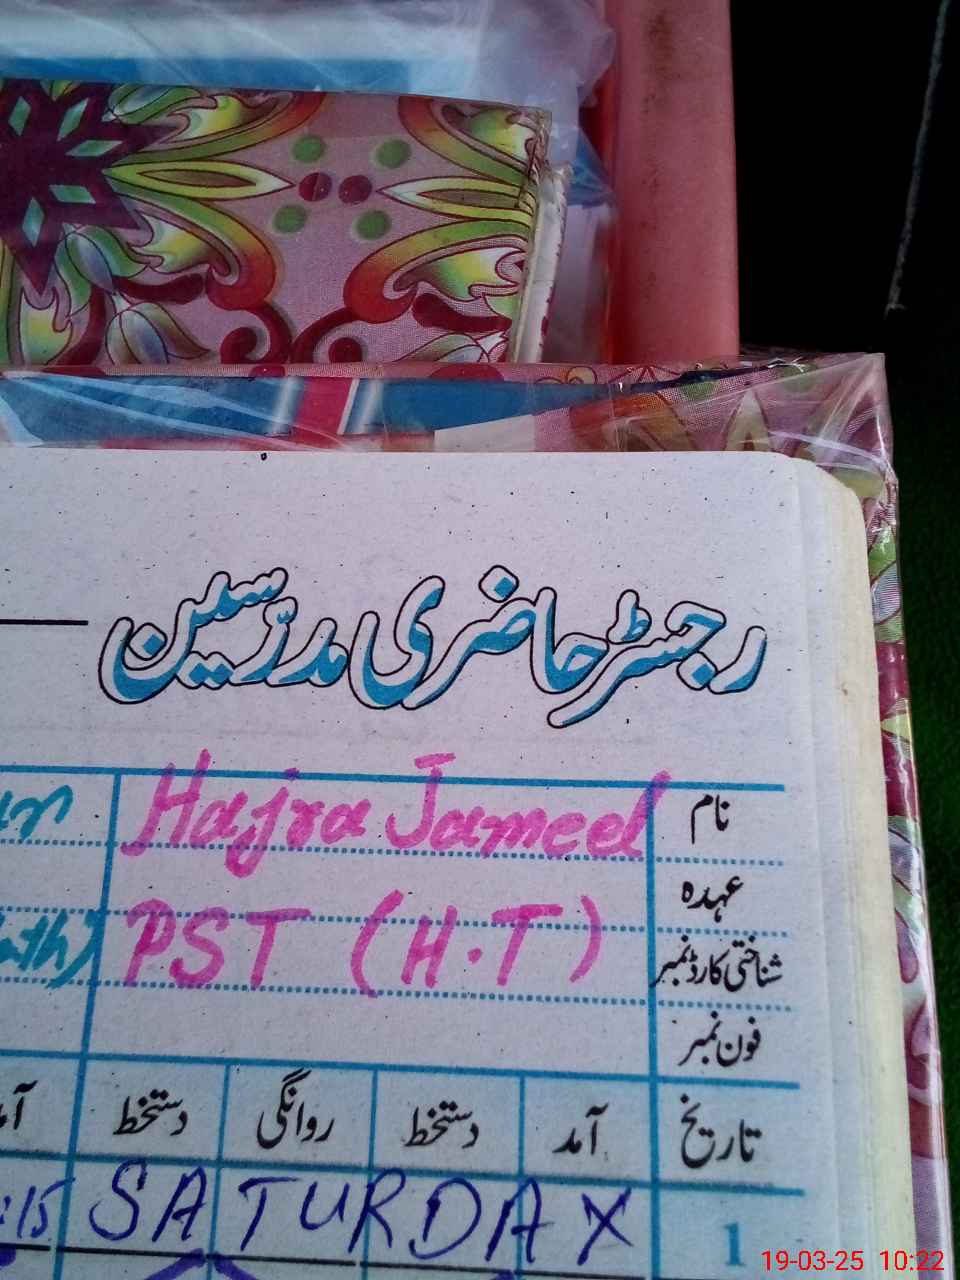 رجسٹر حاضری مدرّسین
نام Hajra Jameel
عہدہ
شناختی کارڈ نمبر PST (H.T)
فون نمبر
تاریخ آمد دستخط روانگی دستخط
1 SATURDAY :15
19-03-25 10:22